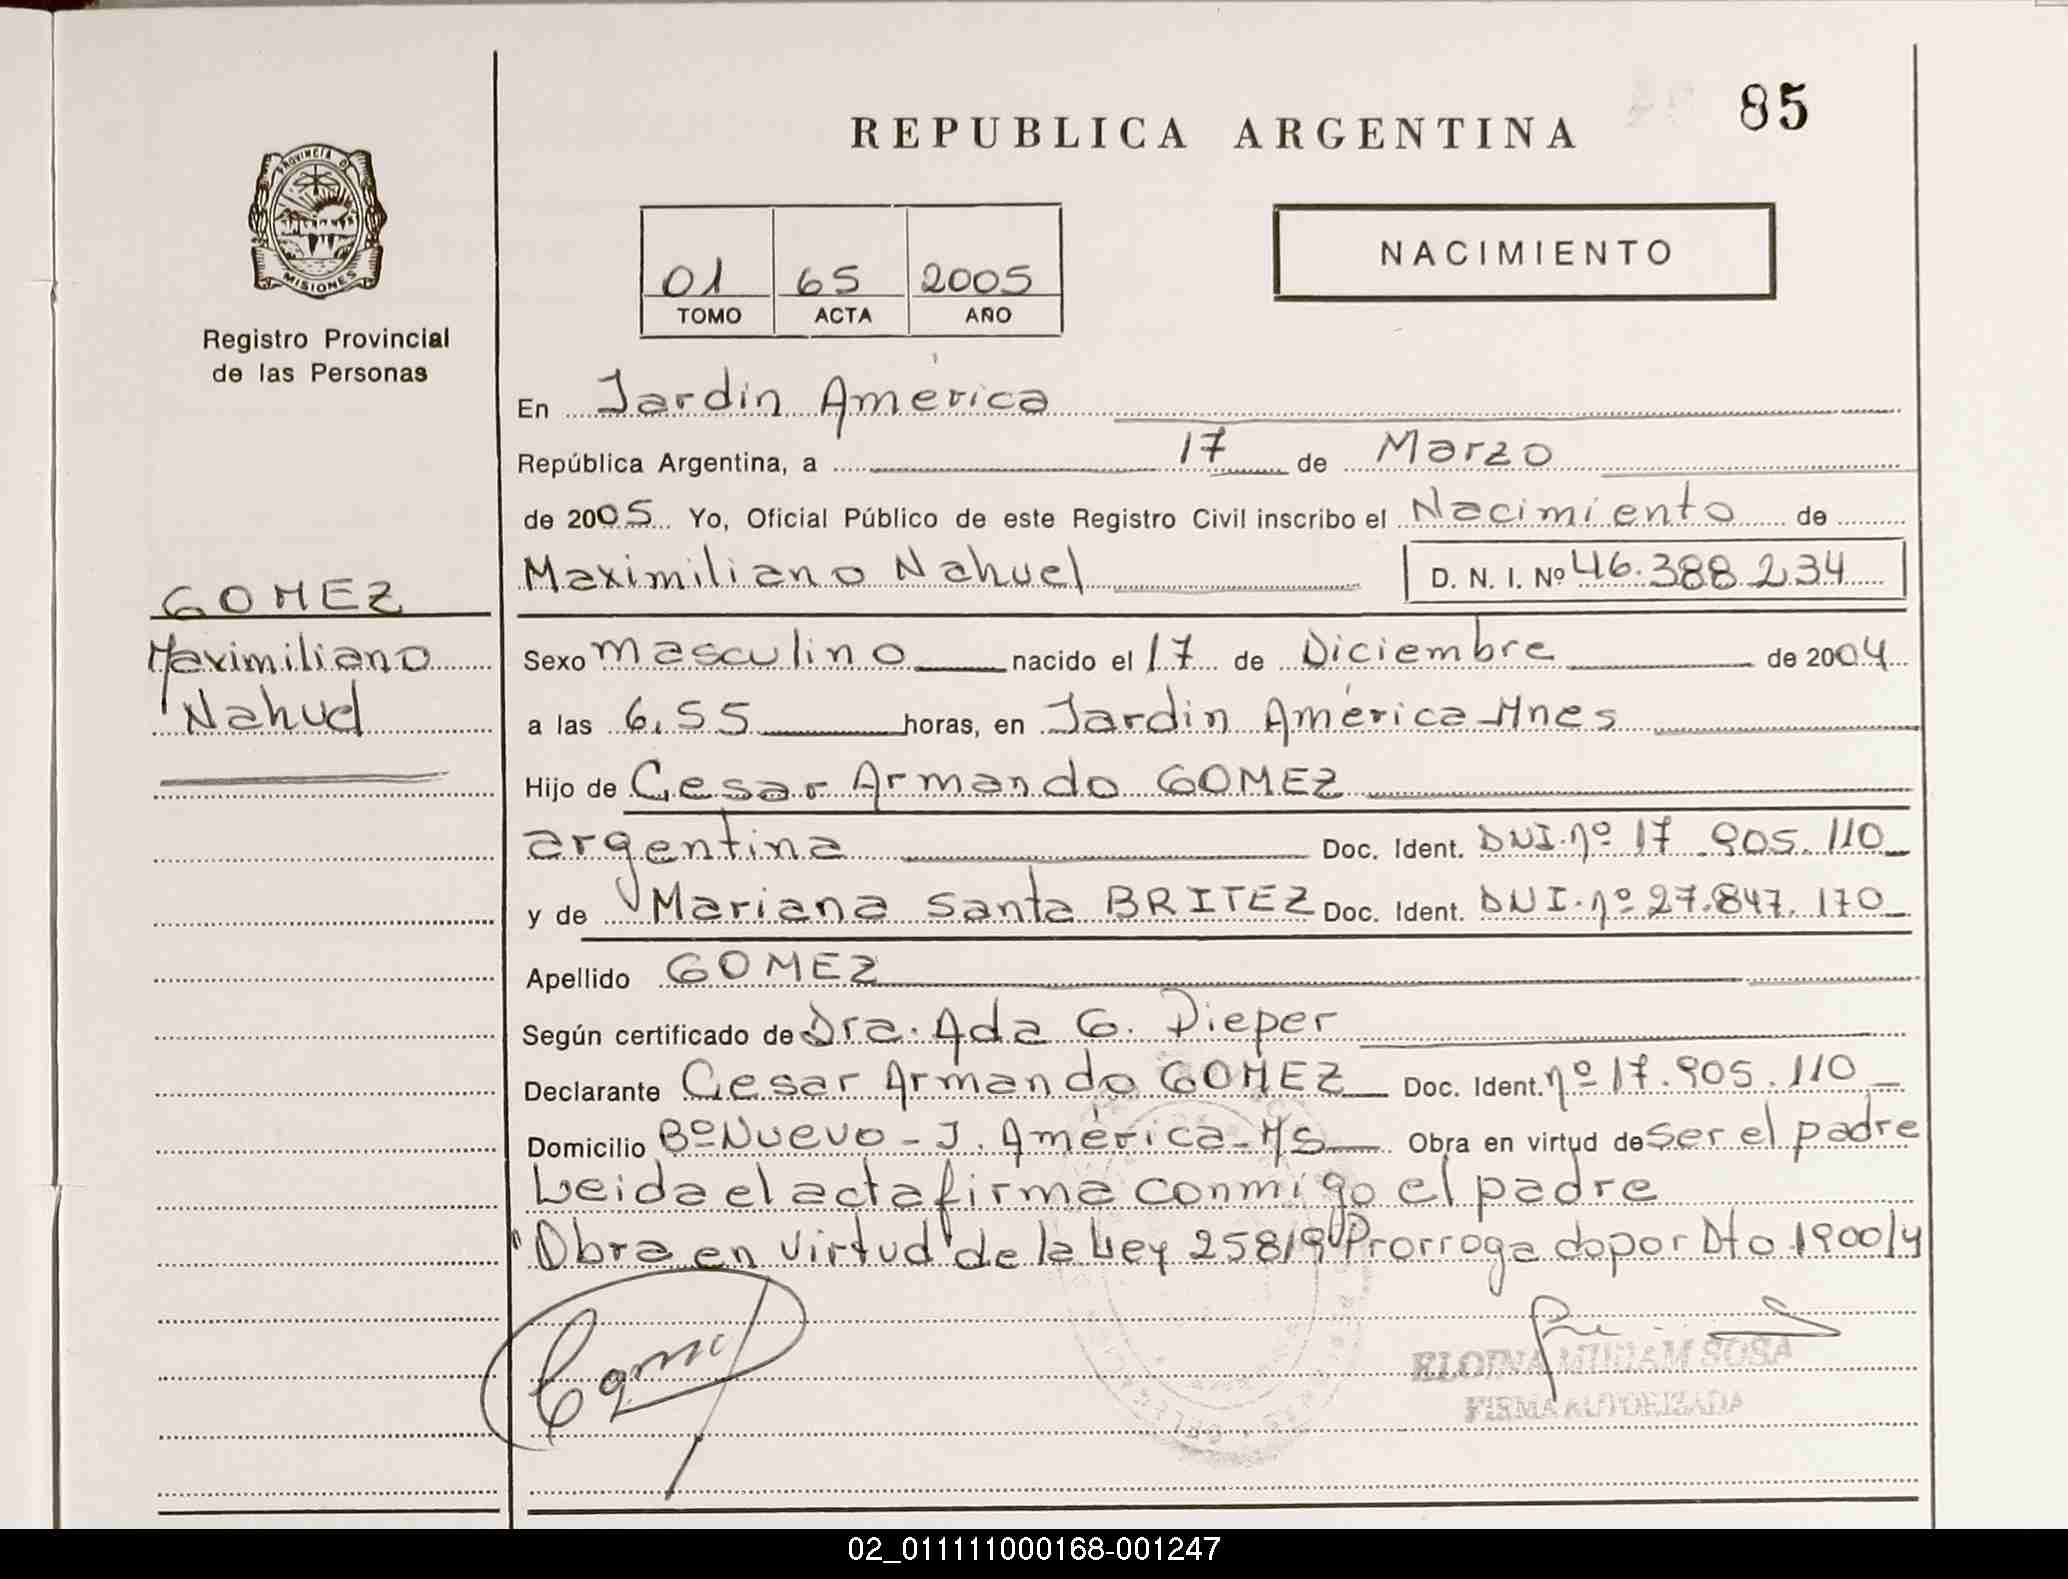 85
REPUBLICA ARGENTINA
PROVINCIA DE
MISIONES
Registro Provincial
de las Personas
NACIMIENTO
01 65 2005
TOMO ACTA AÑO
En Jardin América
República Argentina, a 17 de Marzo
de 2005 Yo, Oficial Público de este Registro Civil inscribo el Nacimiento de
Maximiliano Nahuel D. N. I. Nº 46.388.234
GOMEZ
Maximiliano
Nahuel
Sexo masculino nacido el 17 de Diciembre de 2004
a las 6,55 horas, en Jardin América-Mnes
Hijo de Cesar Armando GOMEZ
argentina Doc. Ident. DNI.nº 17.905.110
y de Mariana Santa BRITEZ Doc. Ident. DNI.nº 27.847.170
Apellido GOMEZ
Según certificado de Dra. Ada G. Dieper
Declarante Cesar Armando GOMEZ Doc. Ident. nº 17.905.110
Domicilio Bº Nuevo - J. América-Ms Obra en virtud de ser el padre
Leida el acta firma conmigo el padre
"Obra en virtud de la Ley 25819" Prorrogado por Dto 1900/4
ELOINA MIRIAM SOSA
FIRMA AUTORIZADA
02_011111000168-001247